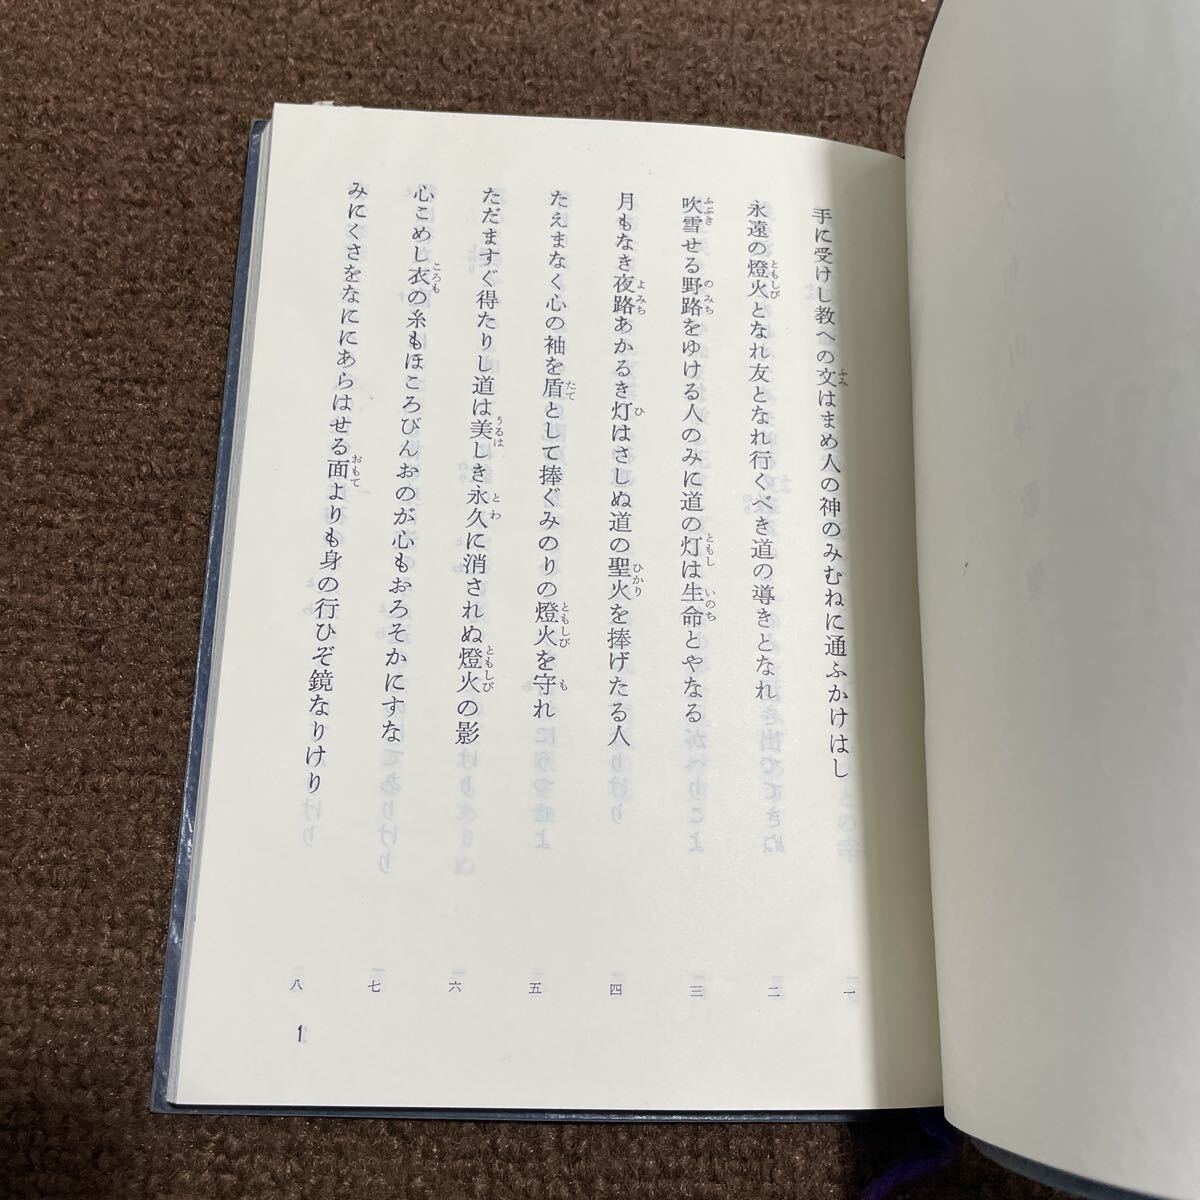 手に受けし教への文はまめ人の神のみむねに通ふかけはし 一
永遠の燈火となれ友となれ行くべき道の導きとなれ 二
吹雪せる野路をゆける人のみに道の灯は生命とやなる 三
月もなき夜路あかるき灯はさしぬ道の聖火を捧げたる人 四
たえまなく心の袖を盾として捧ぐみのりの燈火を守れ 五
ただますぐ得たりし道は美しき永久に消されぬ燈火の影 六
心こめし衣の糸もほころびんおのが心もおろそかにすな 七
みにくさをなににあらはせる面よりも身の行ひぞ鏡なりけり 八
1